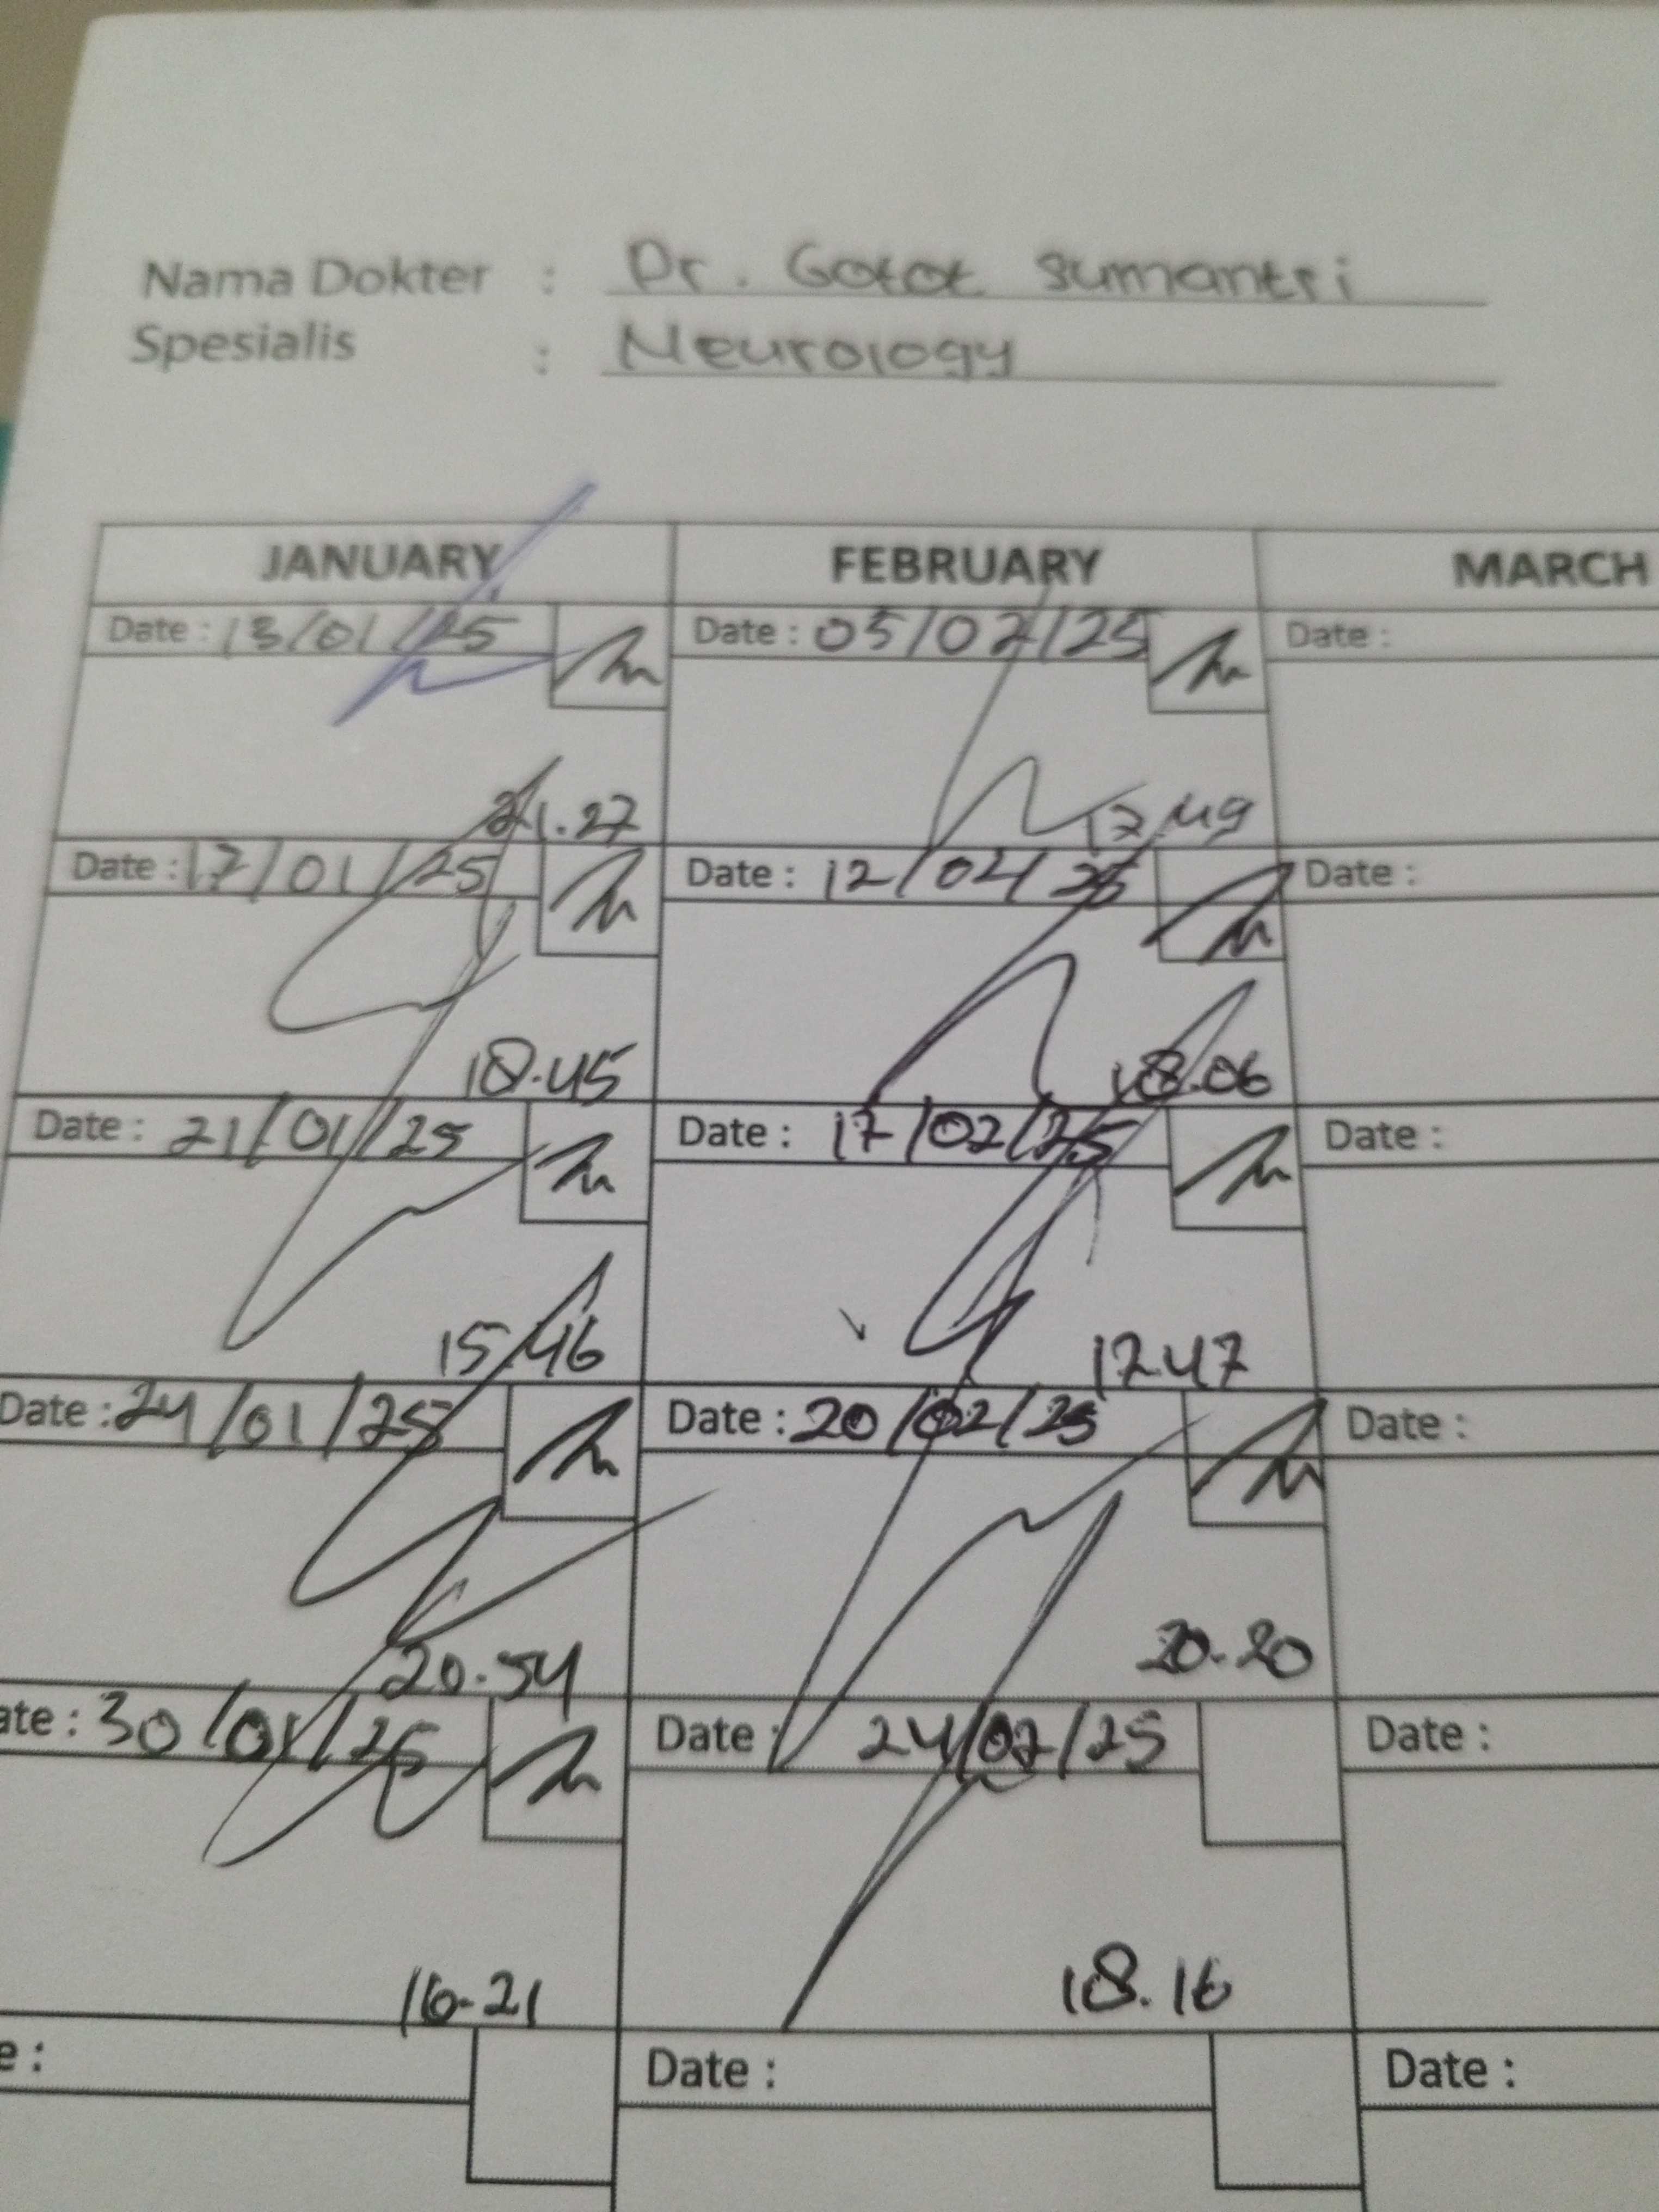 Nama Dokter : Dr. Gotot Sumantri
Spesialis : Neurology
JANUARY FEBRUARY MARCH
Date : 13/01/25 Date : 05/02/25 Date :
21.27 17.49
Date : 17/01/25 Date : 12/02/25 Date :
18.45 18.06
Date : 21/01/25 Date : 17/02/25 Date :
15.46 17.47
Date : 24/01/25 Date : 20/02/25 Date :
20.54 20.20
ate : 30/01/25 Date : 24/02/25 Date :
16.21 18.16
e : Date : Date :